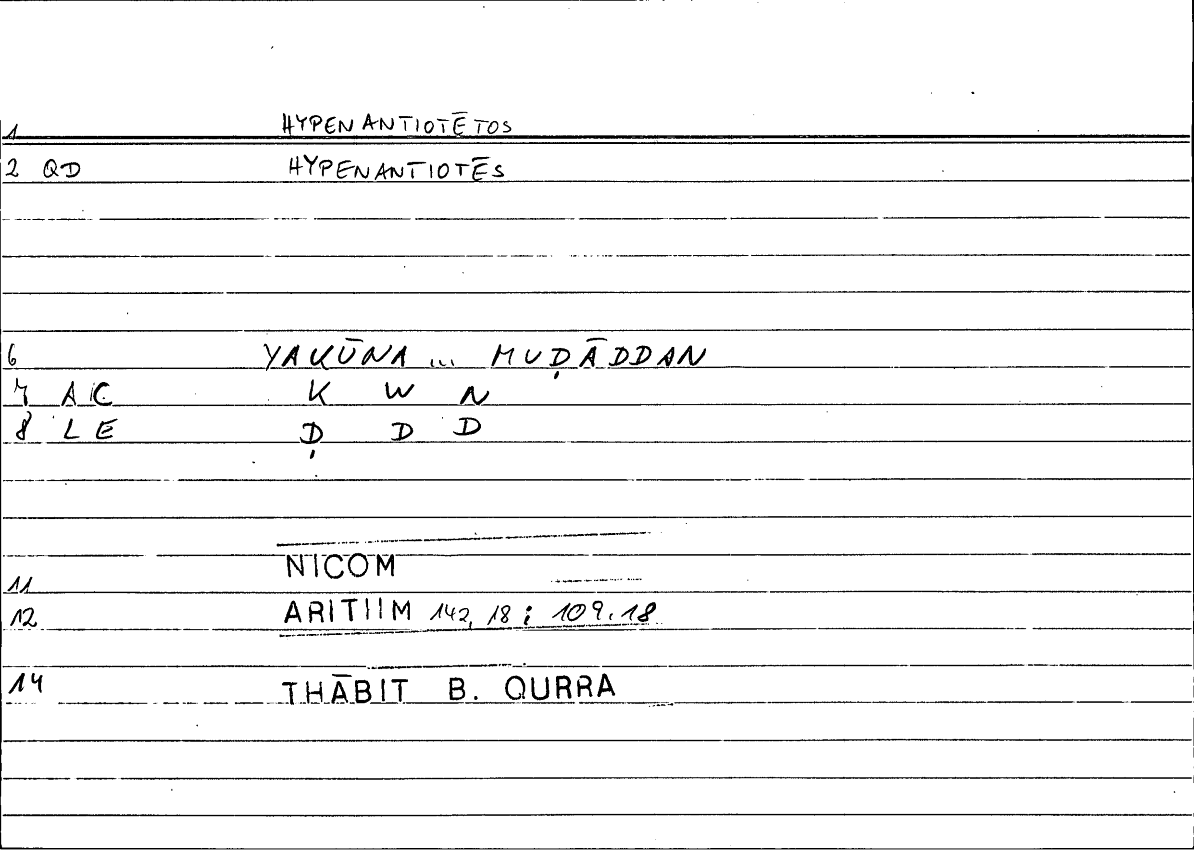 1 HYPENANTIOTĒTOS
2 QD HYPENANTIOTĒS
6 YAKŪNA ... MUḌĀDDAN
7 AC K W N
8 LE Ḍ D D
11 NICOM
12 ARITIIM 142, 18 ; 109.18
14 THĀBIT B. QURRA